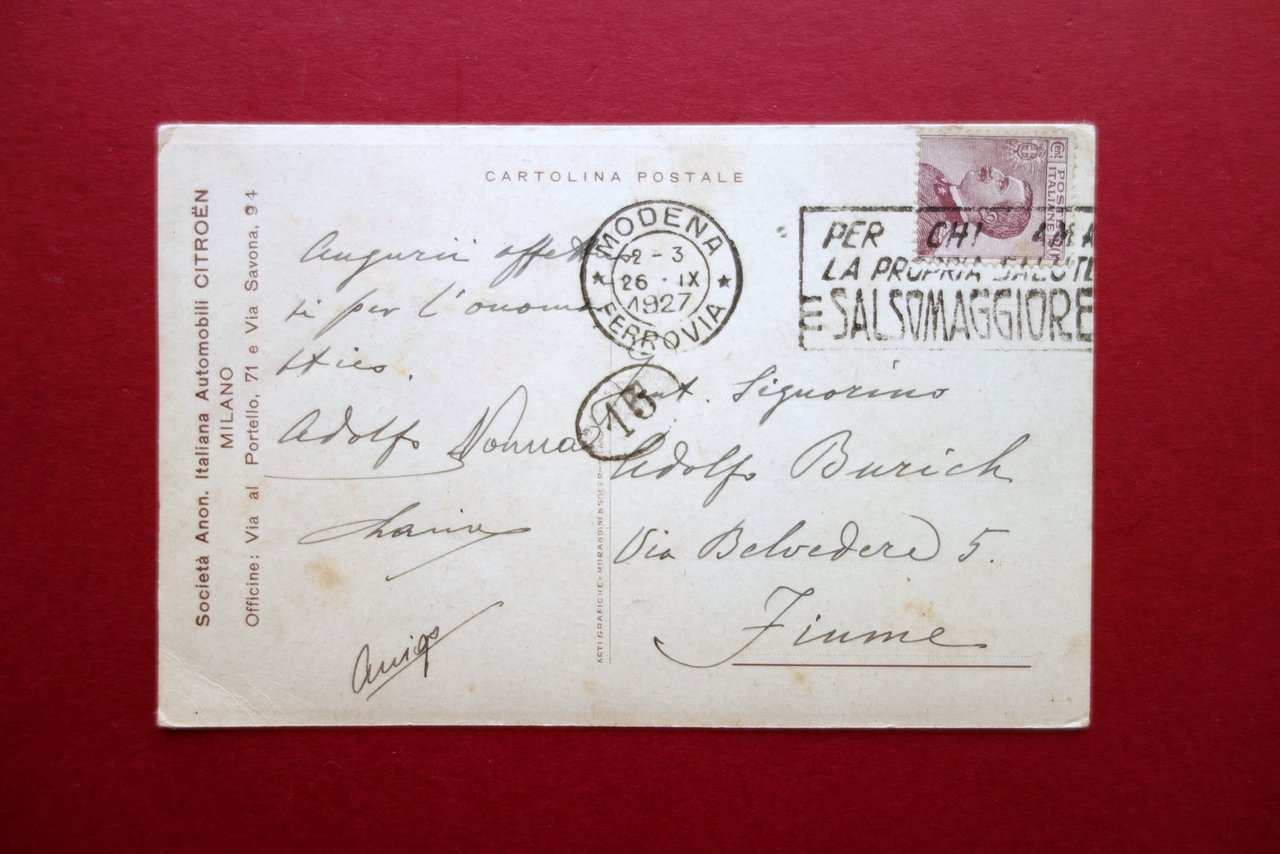 Società Anon. Italiana Automobili CITROËN
MILANO
Officine: Via al Portello, 71 e Via Savona, 94
CARTOLINA POSTALE
Cent.
POSTE
ITALIANE
MODENA
2 - 3
26 · IX
1927
FERROVIA
PER CHI AMA
LA PROPRIA SALUTE
SALSOMAGGIORE
15
Augurii affettuo
si per l'onoma
stico.
Adolfo Nonna
ARTI GRAFICHE-MORANDINI & SOLER-
Signorino
Adolfo Burich
Via Belvedere 5.
Fiume